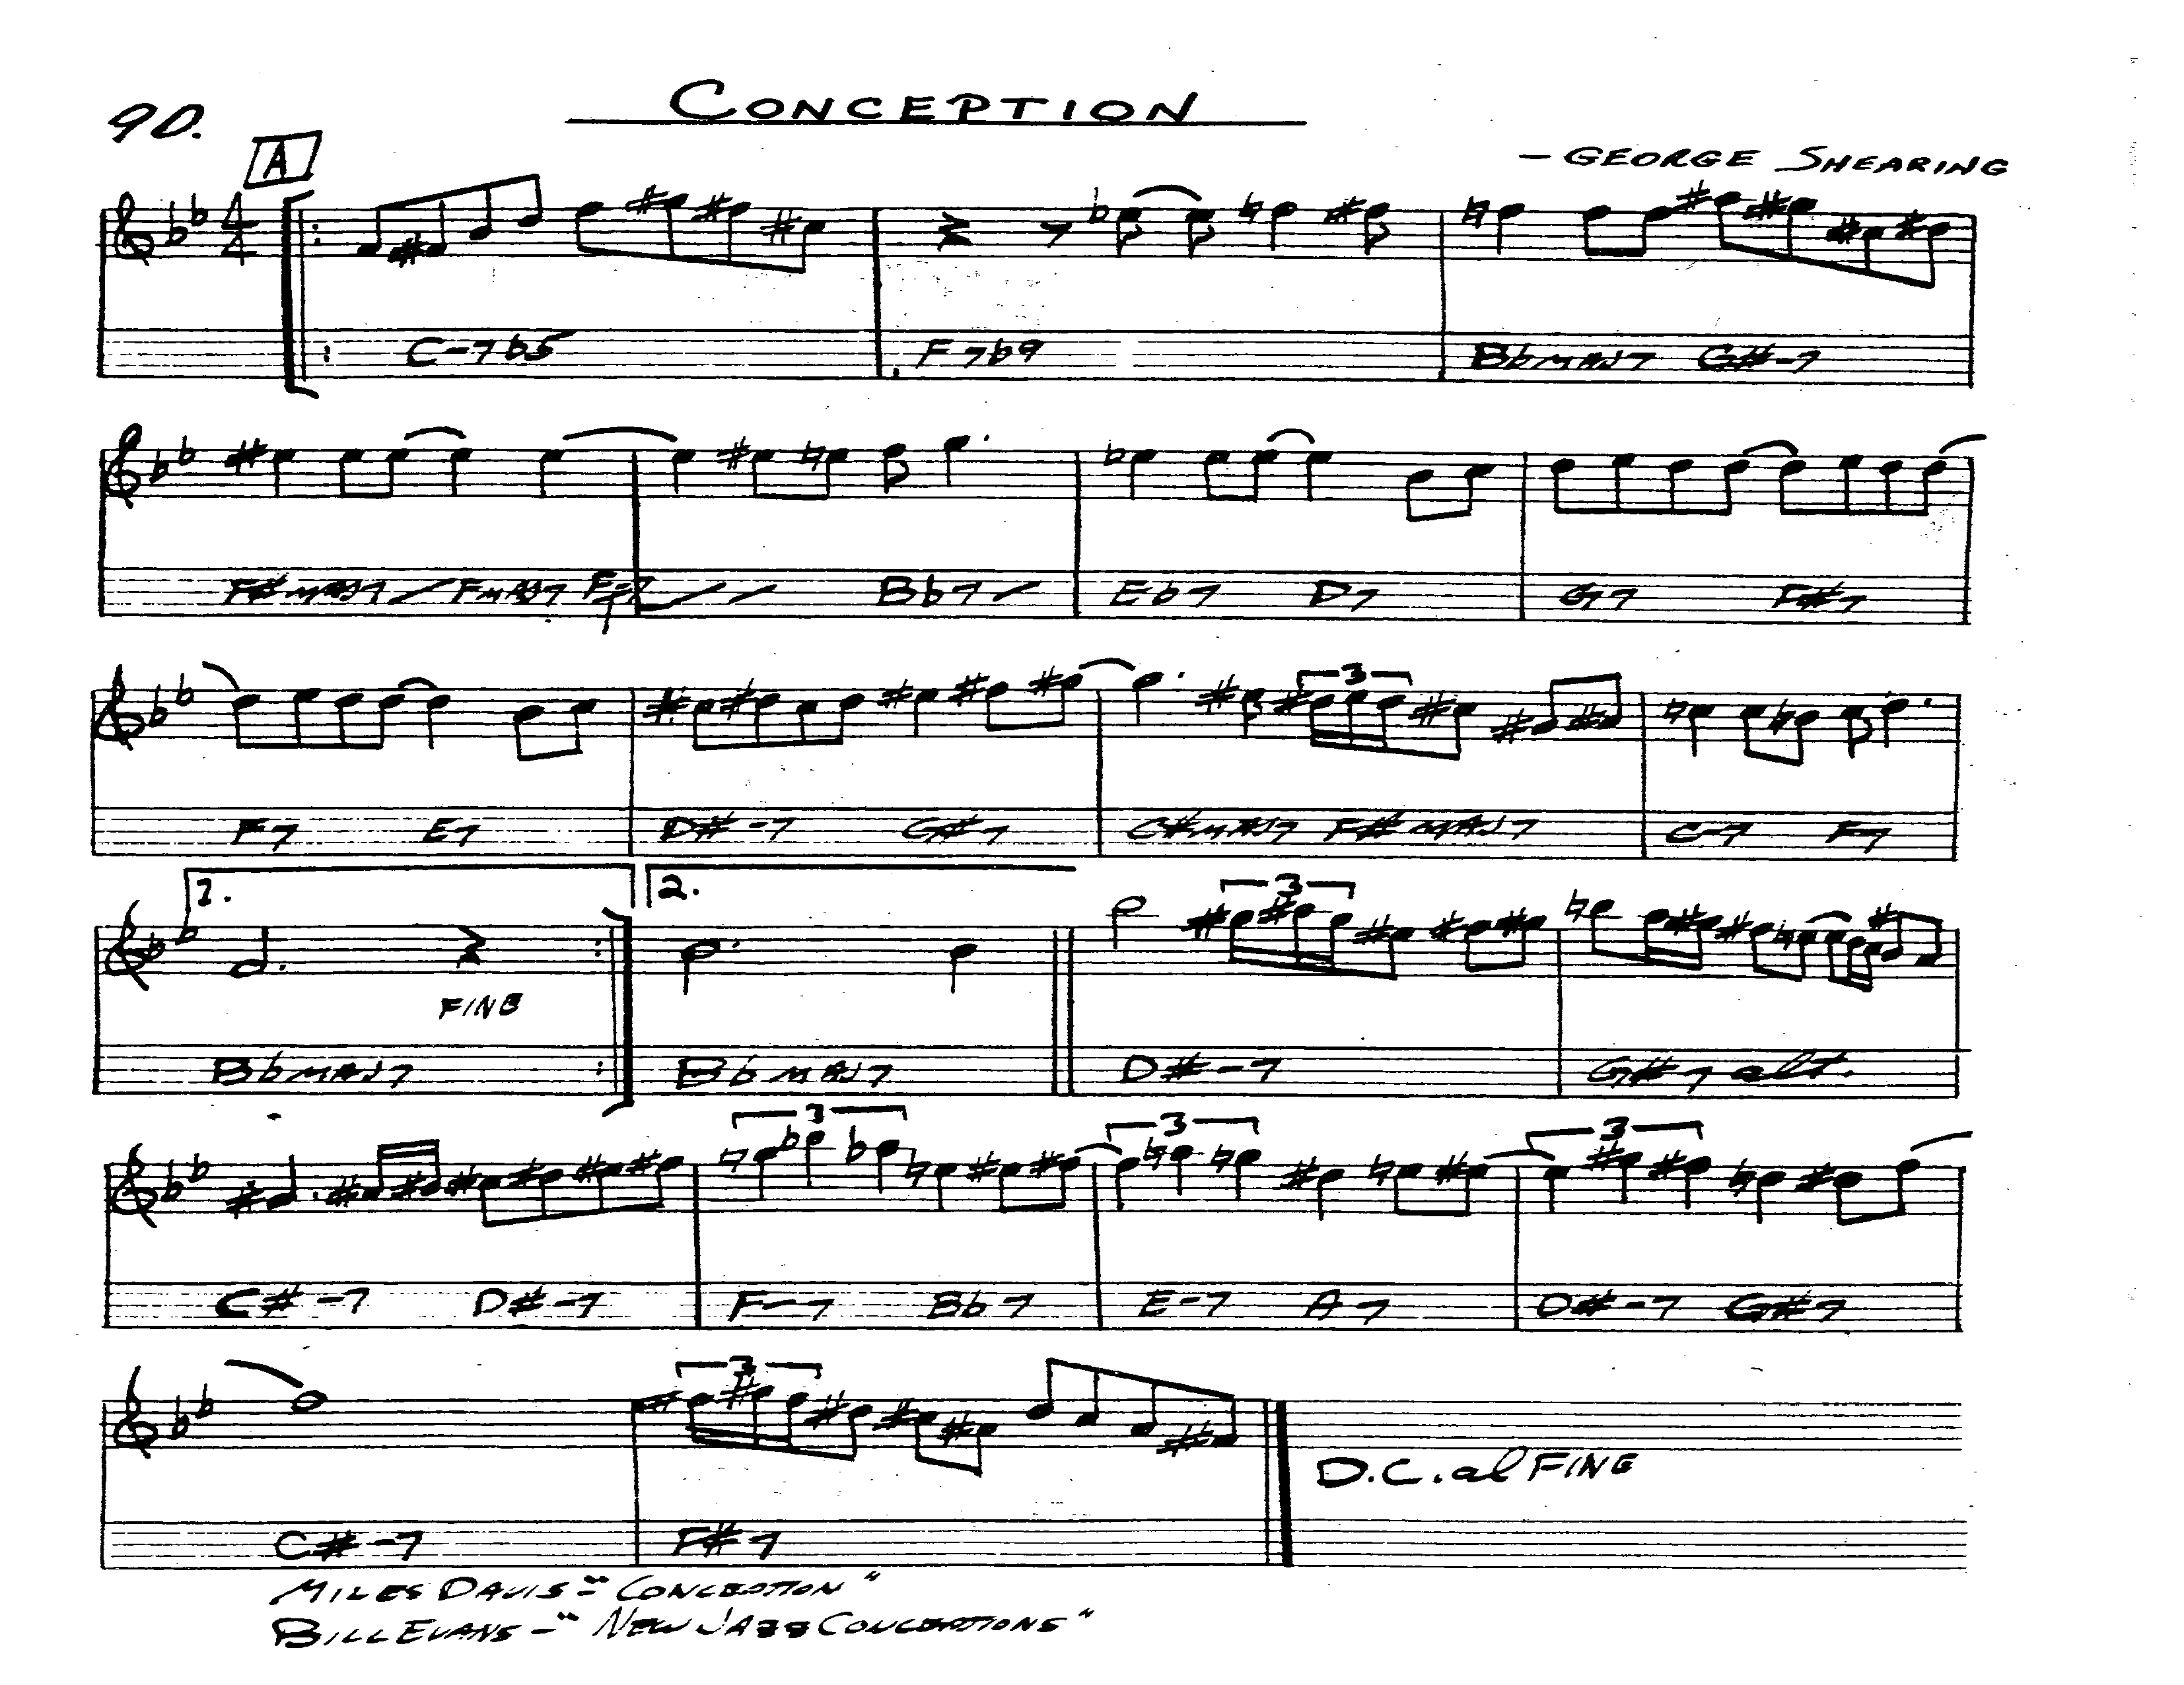 CONCEPTION
90.
— GEORGE SHEARING
A
4/4
C-7b5 F7b9 BbMAJ7 G#-7
F#MAJ7 / FMAJ7 F-7 / / Bb7 / Eb7 D7 G7 F#7
3
F7 E7 D#-7 G#7 C#MAJ7 F#MAJ7 C-7 F7
1. 2. 3
FINE
BbMAJ7 BbMAJ7 D#-7 G#7 alt.
3 3 3
C#-7 D#-7 F-7 Bb7 E-7 A7 D#-7 G#7
3
D.C. al FINE
C#-7 F#7
MILES DAVIS - "CONCEPTION"
BILL EVANS - "NEW JAZZ CONCEPTIONS"